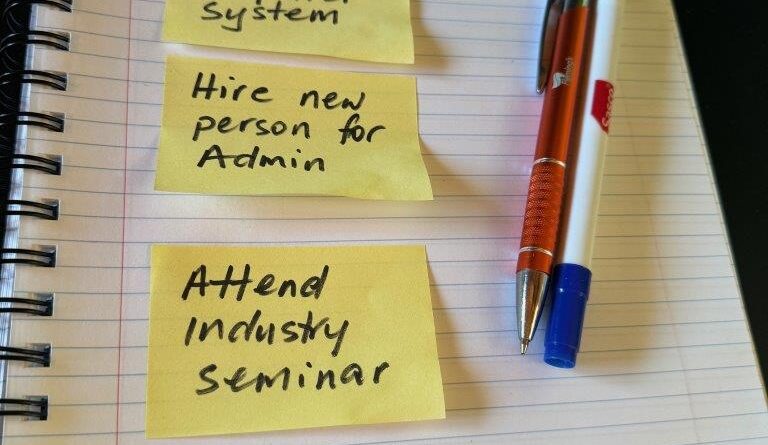 system
Hire new
person for
Admin
Attend
industry
seminar